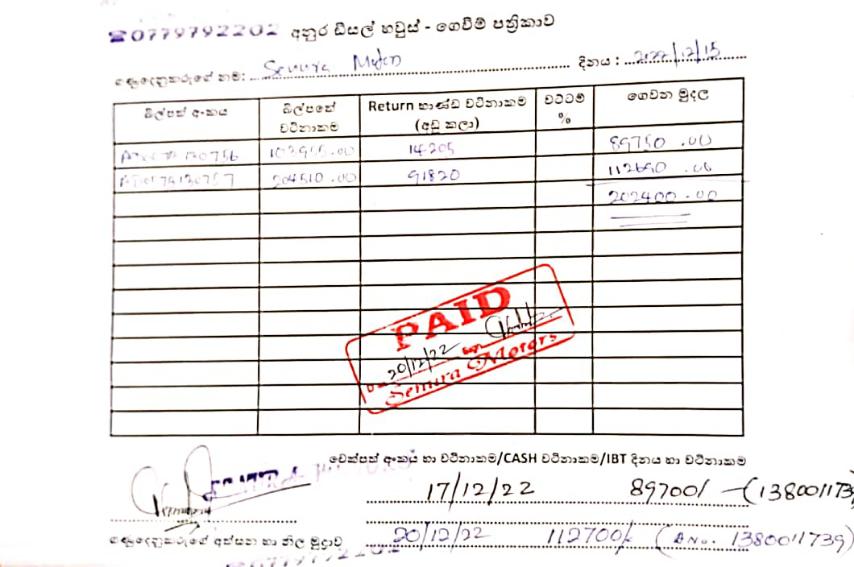 ☎0779792202 අනුර ඩීසල් හවුස් - ගෙවීම් පත්‍රිකාව
ගණුදෙනුකරුගේ නම: Semura දිනය : 2022/12/15
බිල්පත් අංකය බිල්පතේ වටිනාකම Return භාණ්ඩ වටිනාකම (අඩු කලා) වට්ටම් % ගෙවන මුදල
103955.00 14205 89750.00
204510.00 91820 112690.00
202400.00
PAID
20/12/22
Semura Motors
චෙක්පත් අංකය හා වටිනාකම/CASH වටිනාකම/IBT දිනය හා වටිනාකම
17/12/22 89700/- (1380011739
20/12/22 112700/- (A No. 1380011739)
ගණුදෙනුකරුගේ අත්සන හා නිල මුද්‍රාව